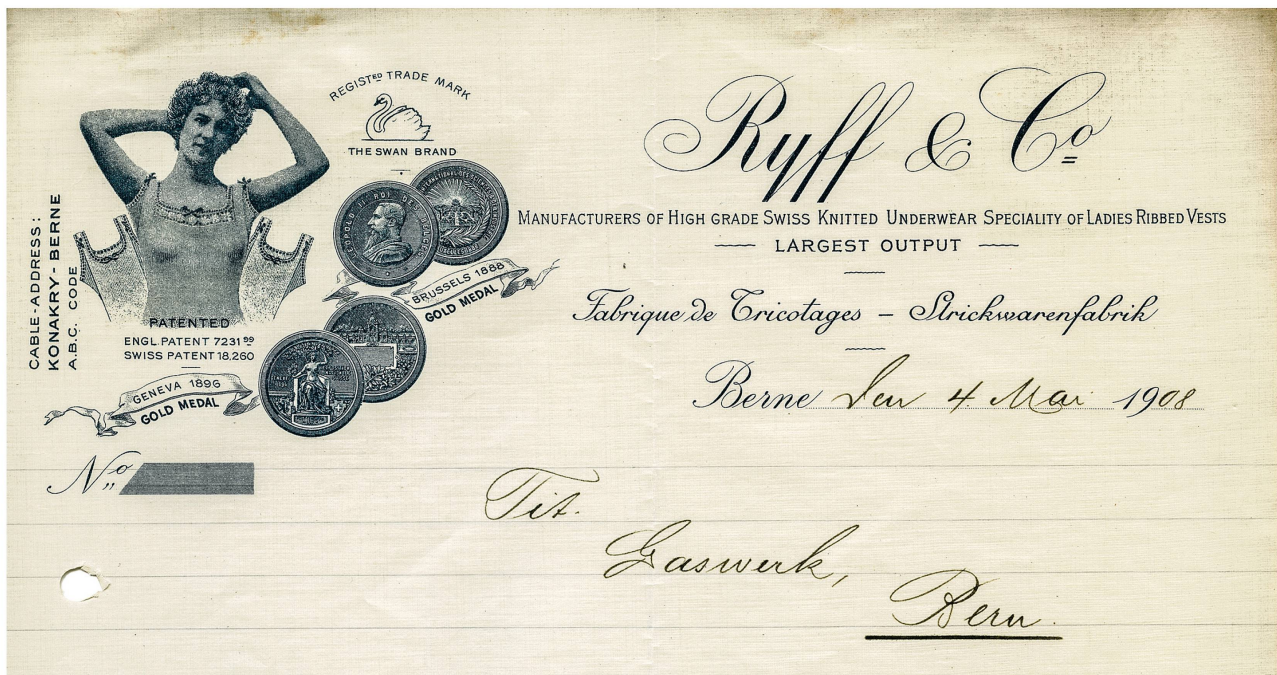 REGISTED TRADE MARK
THE SWAN BRAND
CABLE-ADDRESS:
KONAKRY-BERNE
A.B.C. CODE
PATENTED
ENGL. PATENT 7231 99
SWISS PATENT 18.260
BRUSSELS 1888
GOLD MEDAL
GENEVA 1896
GOLD MEDAL
Ryff & Co
MANUFACTURERS OF HIGH GRADE SWISS KNITTED UNDERWEAR SPECIALITY OF LADIES RIBBED VESTS
LARGEST OUTPUT
Fabrique de Tricotages – Strickwarenfabrik
Berne den 4. Mai 1908
No
Tit.
Gaswerk,
Bern.